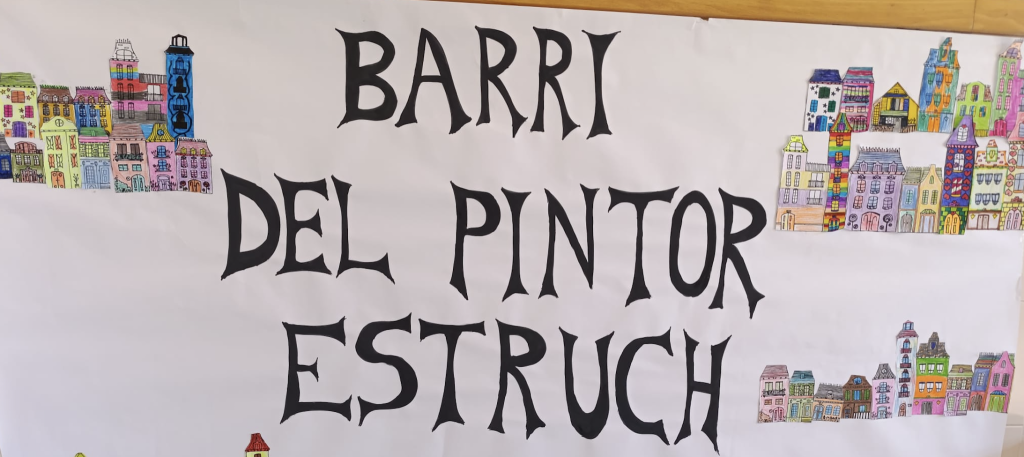 BARRI
DEL PINTOR
ESTRUCH